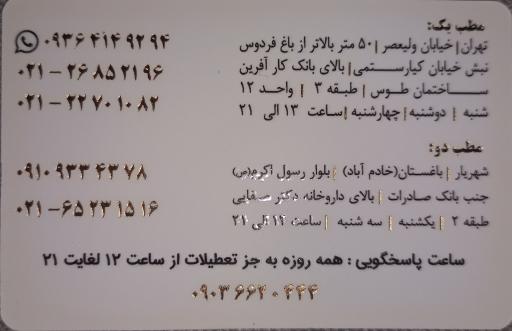 مطب یک:
تهران | خیابان ولیعصر | ۵۰ متر بالاتر از باغ فردوس
نبش خیابان کیارستمی | بالای بانک کار آفرین
ساختمان طوس | طبقه ۳ | واحد ۱۲
شنبه | دوشنبه | چهارشنبه | ساعت ۱۳ الی ۲۱
۰۹۳۶ ۴۱۴ ۹۲ ۹۴
۰۲۱ - ۲۶ ۸۵ ۲۱ ۹۶
۰۲۱ - ۲۲ ۷۰ ۱۰ ۸۲
مطب دو:
شهریار | باغستان (خادم آباد) | بلوار رسول اکرم (ص)
جنب بانک صادرات | بالای داروخانه دکتر صفایی
طبقه ۲ | یکشنبه | سه شنبه | ساعت ۱۲ الی ۲۱
۰۹۱۰ ۹۳۳ ۴۳ ۷۸
۰۲۱ - ۶۵ ۲۳ ۱۵ ۱۶
ساعت پاسخگویی : همه روزه به جز تعطیلات از ساعت ۱۲ لغایت ۲۱
۰۹۰۳ ۶۶۲ ۰ ۴۴۴